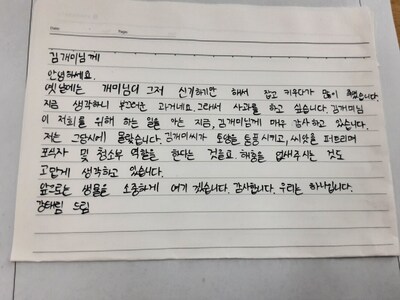 Date. Page.
김개미님께
안녕하세요.
옛날에는 개미님이 그저 신기하기만 해서 잡고 키우다가 많이 죽였습니다.
지금 생각하니 부끄러운 과거네요. 그래서 사과를 하고 싶습니다. 김개미님
이 저희를 위해 하는 일을 아는 지금, 김개미님께 매우 감사하고 있습니다.
저는 그당시에 몰랐습니다. 김개미씨가 토양을 통풍시키고, 씨앗을 퍼트리며
포식자 및 청소부 역할을 한다는 것을요. 해충을 없애주시는 것도
고맙게 생각하고 있습니다.
앞으로는 생물을 소중하게 여기겠습니다. 감사합니다. 우리는 하나입니다.
강태림 드림